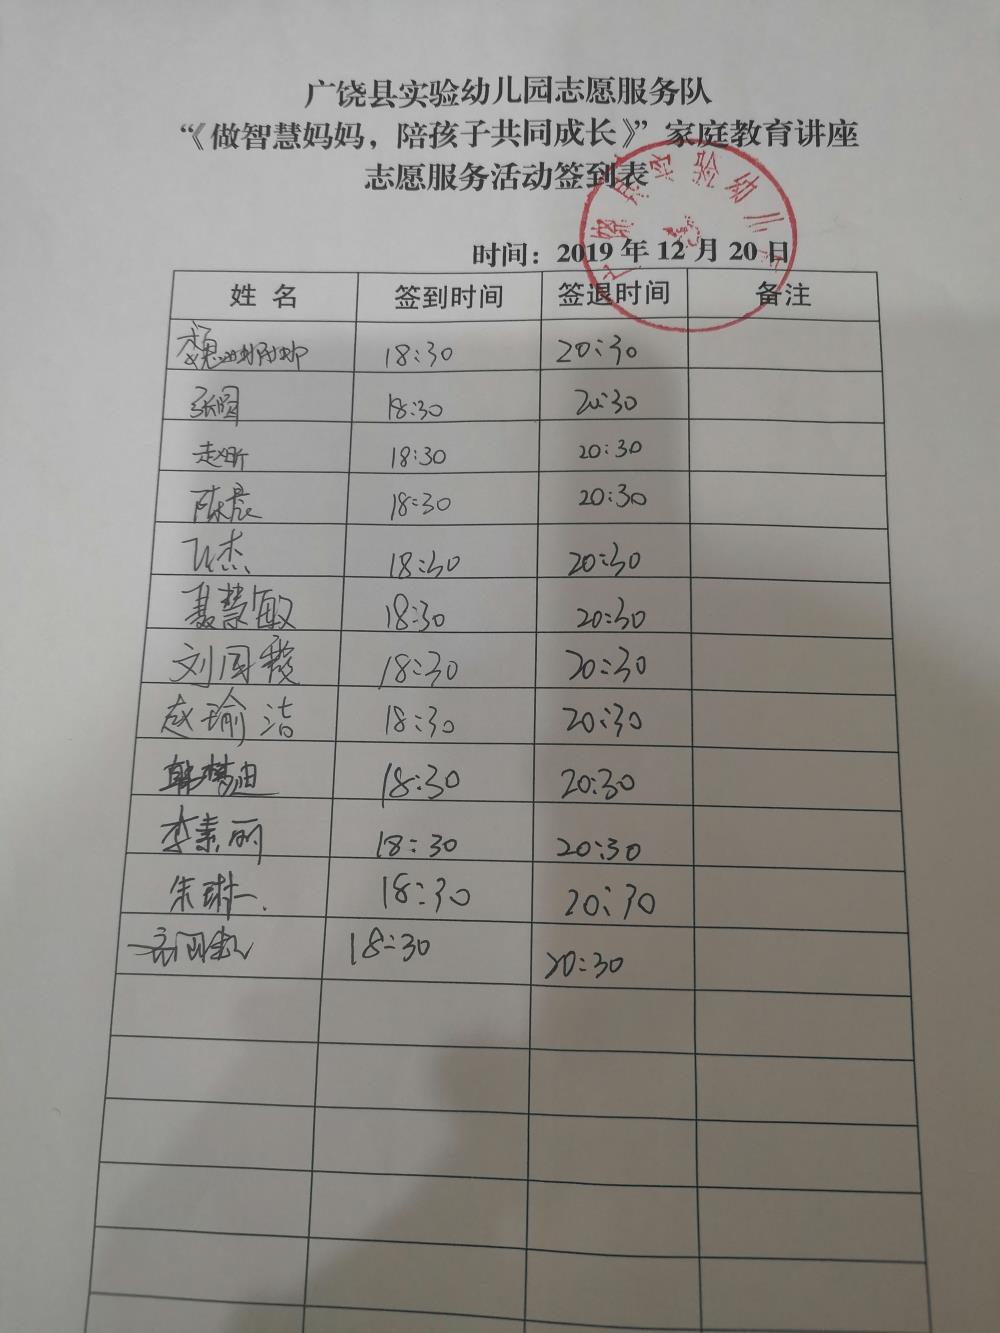 广饶县实验幼儿园志愿服务队
“《做智慧妈妈，陪孩子共同成长》”家庭教育讲座
志愿服务活动签到表
广饶县实验幼儿
时间：2019年12月20日
姓名 签到时间 签退时间 备注
魏 18:30 20:30
张圆 18:30 20:30
赵昕 18:30 20:30
陈晨 18:30 20:30
杰 18:30 20:30
聂慧敏 18:30 20:30
刘国霞 18:30 20:30
赵瑜洁 18:30 20:30
韩梦迪 18:30 20:30
李素丽 18:30 20:30
朱琳一 18:30 20:30
18:30 20:30